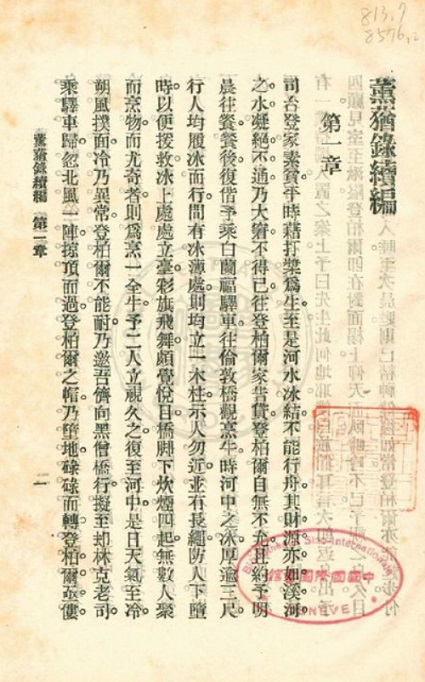 813.7
8576.2
薰蕕錄續編
第一章
司吾登家素貧平時藉打槳爲生至是河水冰結不能行舟其財源亦如溪河
之水凝絕不通乃大窘不得已往登柏爾家告貸登柏爾自無不允且約予明
晨往餐餐後復偕予乘白蘭福驛車往倫敦橋觀烹牛時河中之冰厚逾三尺
行人均履冰而行間有冰薄處則均立一木柱示人勿近並有長繩防人下墮
時以便援救冰上處處立臺彩旗飛舞頗覺悅目橋脚下炊煙四起無數人聚
而烹物而尤奇者則爲烹一全牛予二人立視久之復至河中是日天氣至冷
朔風撲面冷乃異常登柏爾不能耐乃邀吾儕向黑僧橋行擬至却林克老司
乘驛車歸忽北風一陣掠頂而過登柏爾之帽乃墮地碌碌而轉登柏爾亟僂
薰蕕錄續編 第一章
一
Sino-Internationale
GENÈVE